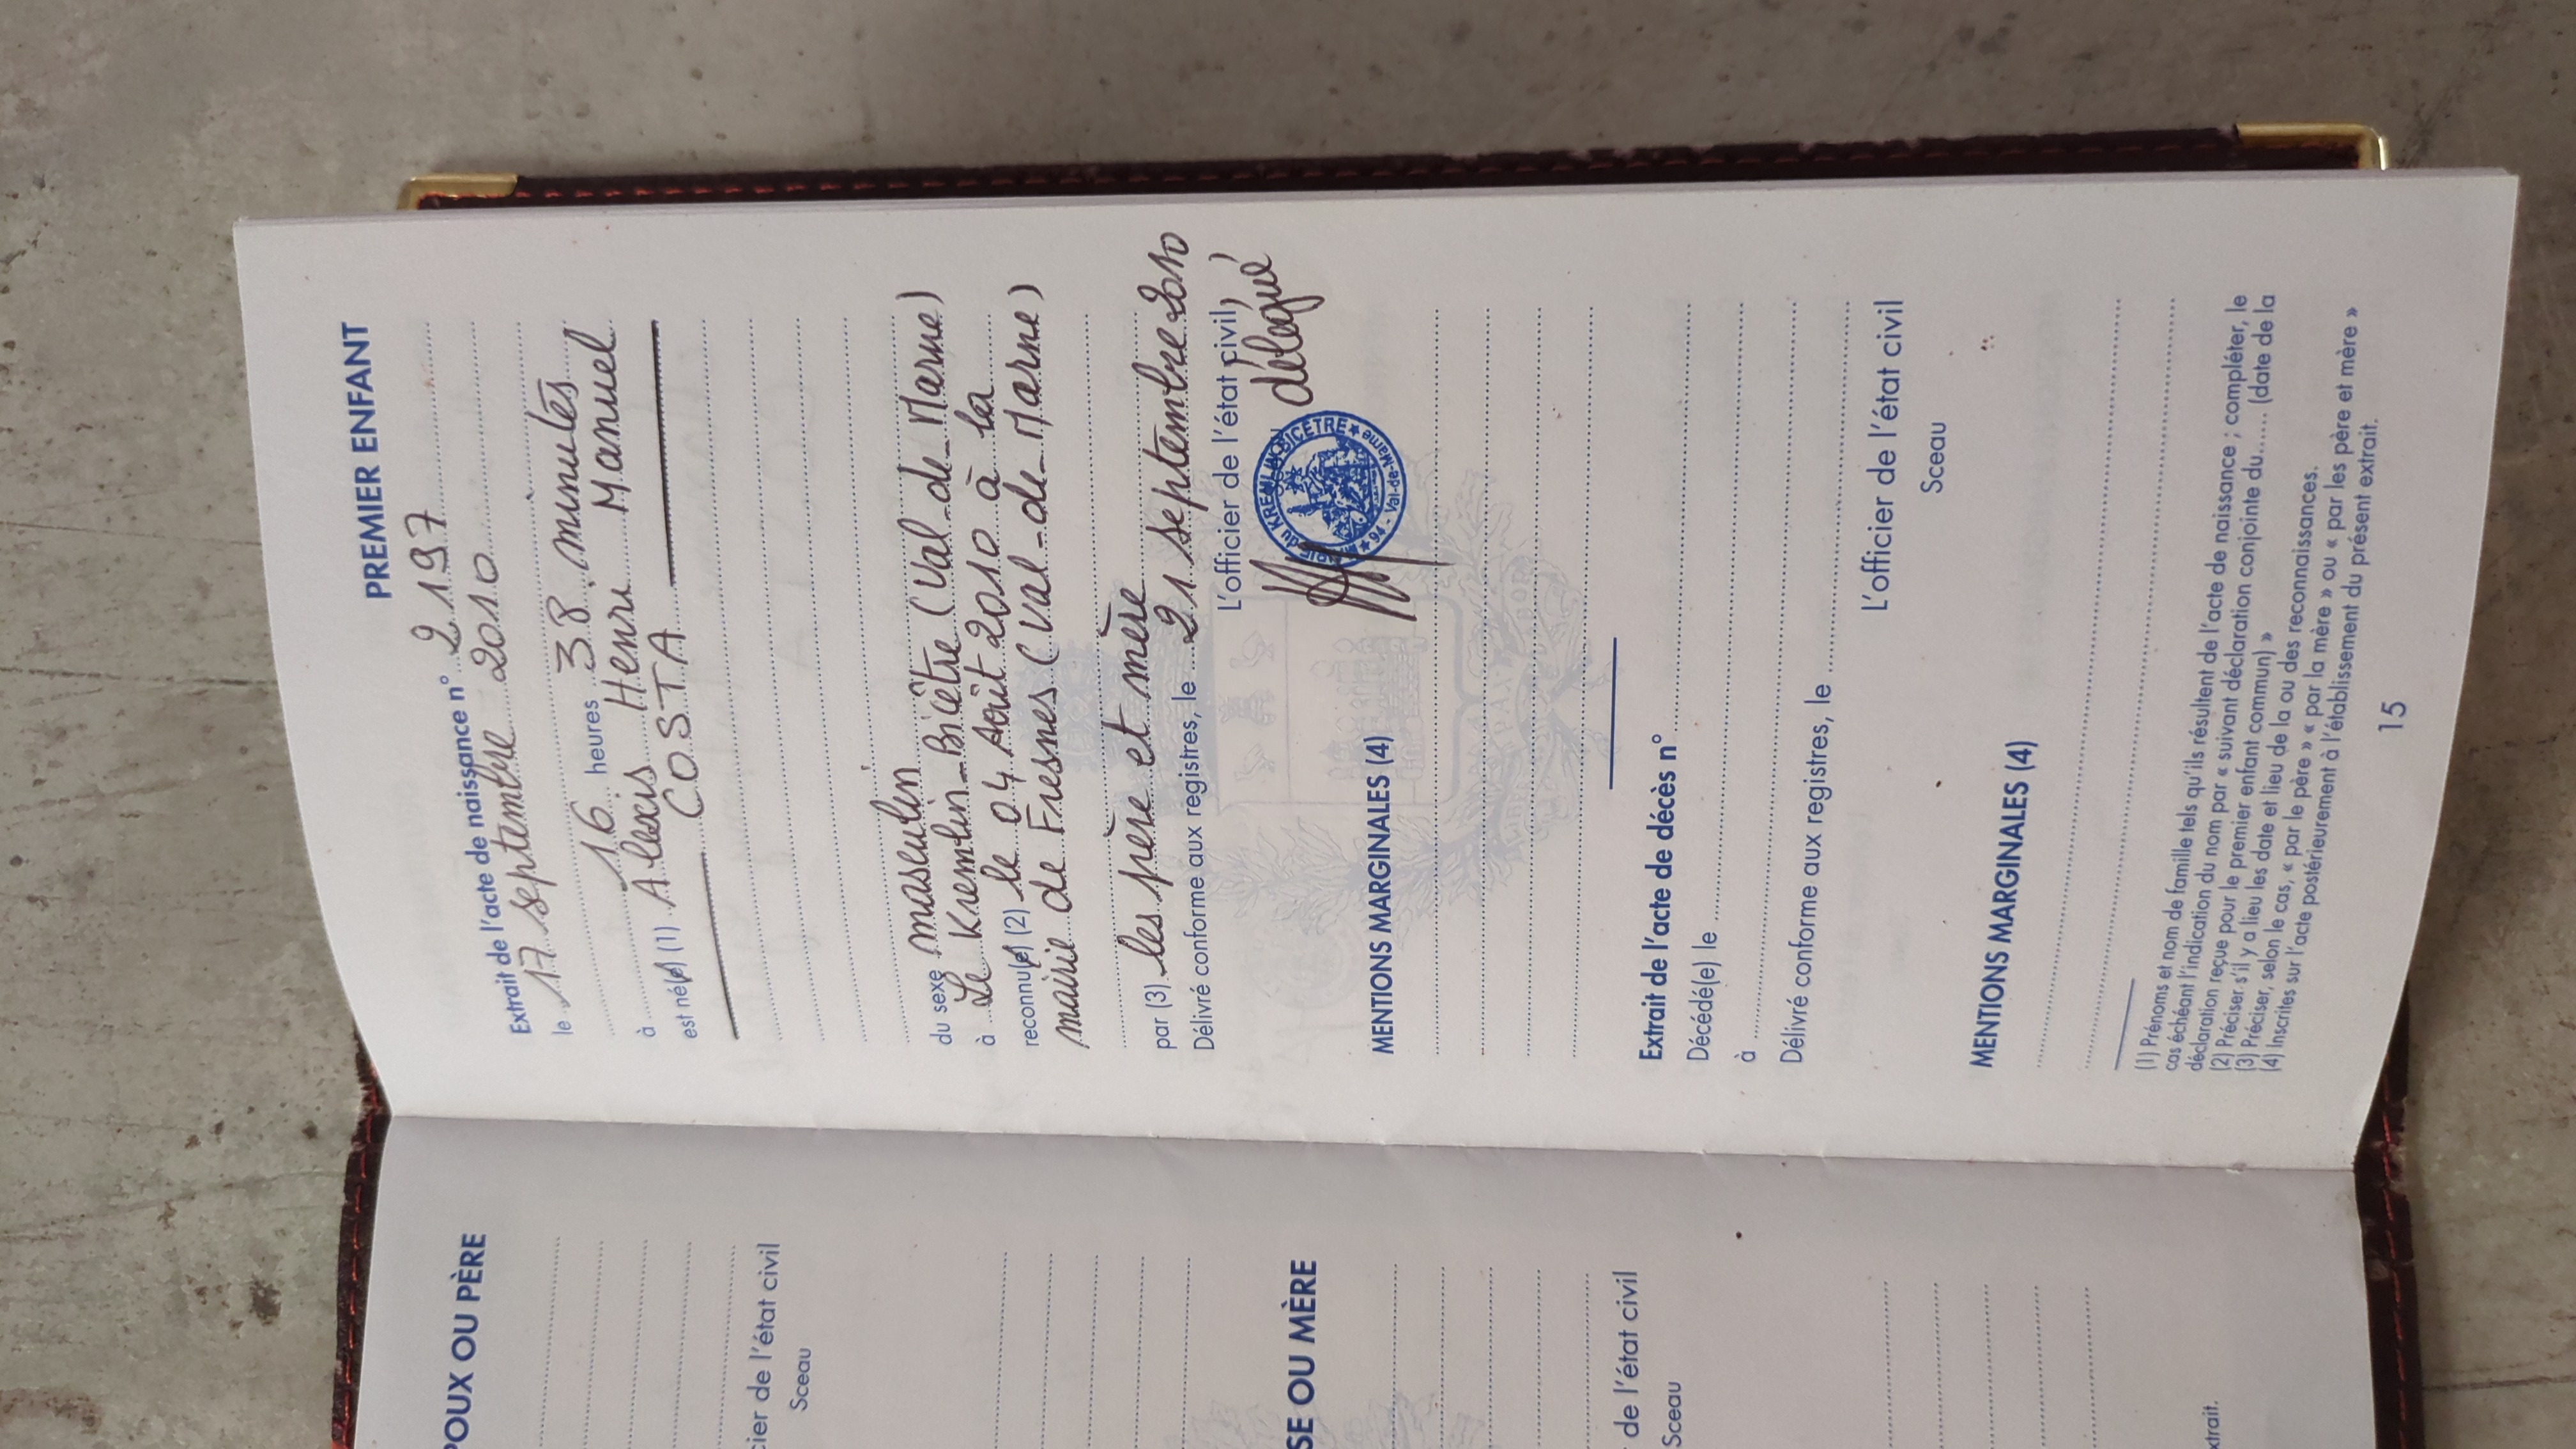 POUX OU PÈRE
cier de l'état civil
Sceau
SE OU MÈRE
de l'état civil
Sceau
xtrait.
PREMIER ENFANT
Extrait de l'acte de naissance n° 2197
le 17 septembre 2010
à 16 heures 38 minutes
est né(e) (1) Alexis Henri Manuel
COSTA
du sexe masculin
à Le Kremlin-Bicêtre (Val-de-Marne)
reconnu(e) (2) le 04 Août 2010 à la
mairie de Fresnes (Val-de-Marne)
par (3) les père et mère
Délivré conforme aux registres, le 21 septembre 2010
L'officier de l'état civil,
délégué
MAIRIE du KREMLIN-BICETRE ★ 94 - Val-de-Marne ★
MENTIONS MARGINALES (4)
Extrait de l'acte de décès n°
Décédé(e) le
à
Délivré conforme aux registres, le
L'officier de l'état civil
Sceau
MENTIONS MARGINALES (4)
(1) Prénoms et nom de famille tels qu'ils résultent de l'acte de naissance ; compléter, le
cas échéant l'indication du nom par « suivant déclaration conjointe du...... (date de la
déclaration reçue pour le premier enfant commun) »
(2) Préciser s'il y a lieu les date et lieu de la ou des reconnaissances.
(3) Préciser, selon le cas, « par le père » « par la mère » ou « par les père et mère »
(4) Inscrites sur l'acte postérieurement à l'établissement du présent extrait.
15